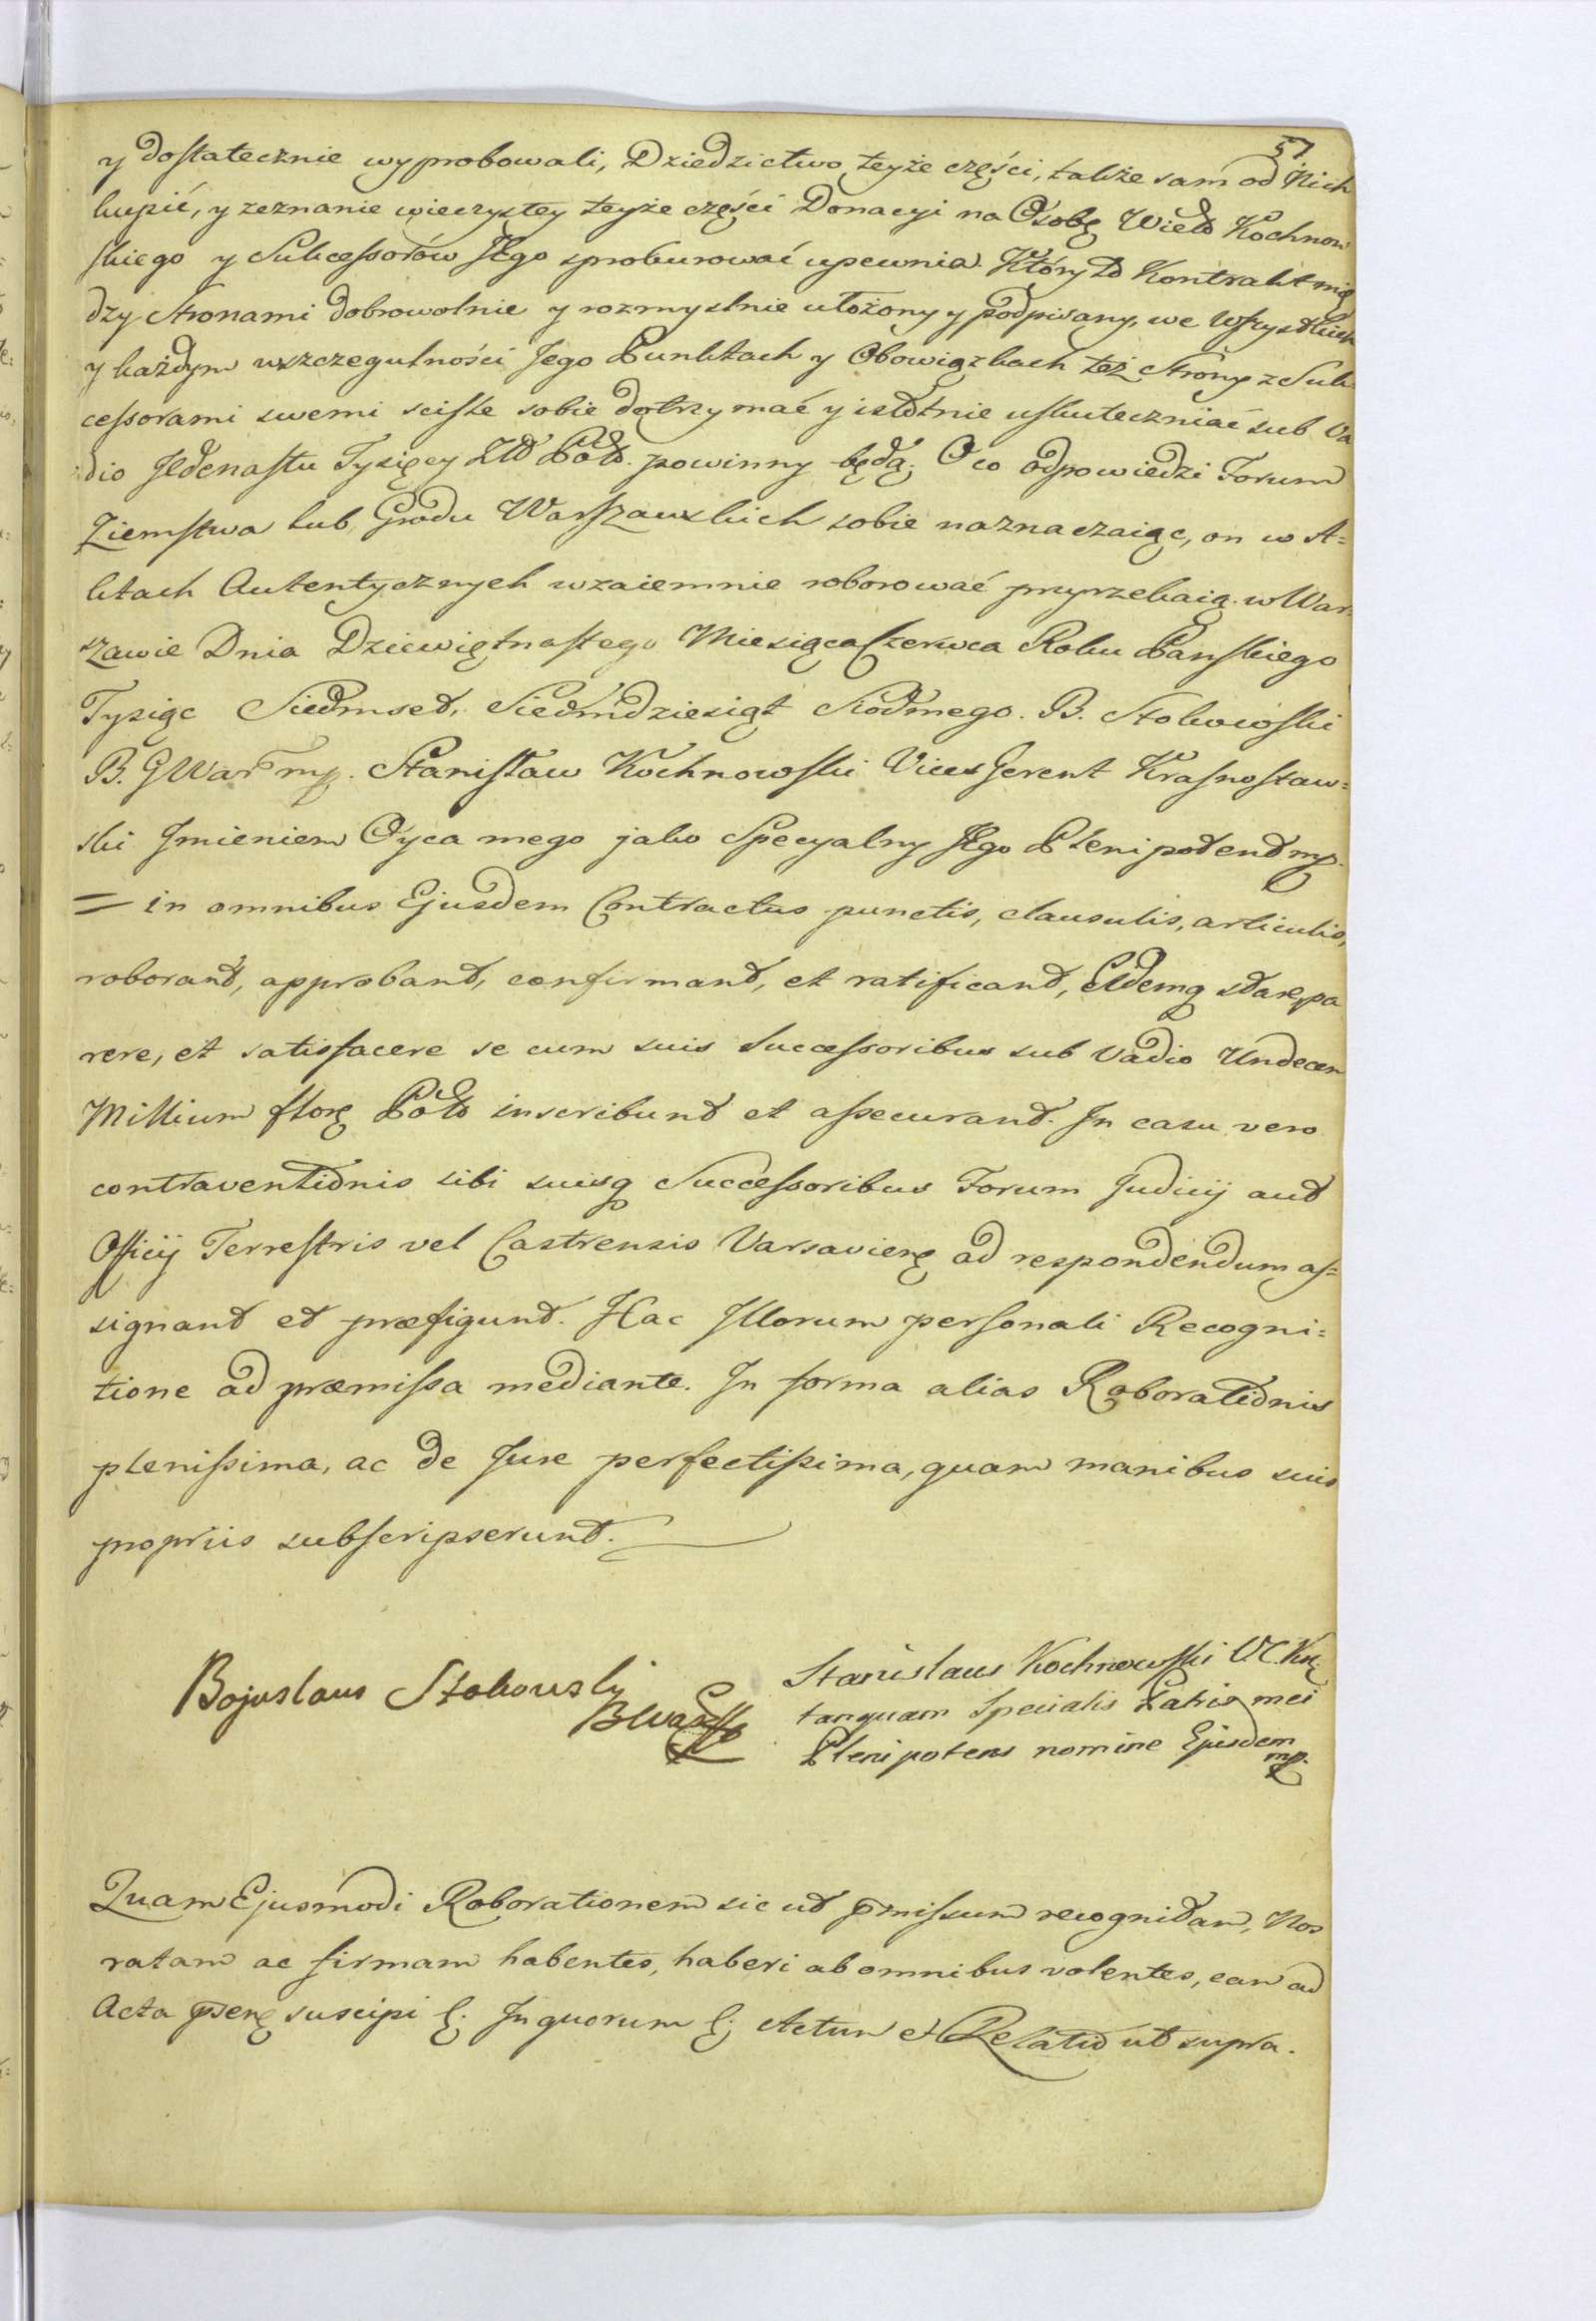 57
y dostatecznie wyprobowali, Dziedzictwo teyże części, także sam od Nich
kupić, y zeznanie wieczystey teyże części Donacyi na Osobę Wielo Kochnow
skiego y Sukcessorów Jego sprokurować upewnia. Który to Kontrakt mię
dzy Stronami dobrowolnie y rozmyslnie ułożony y podpisany, we wszystkich
y każdym wszczegulności Jego Punktach y Obowiązkach też Strony z Suk
cessorami swemi scisle sobie dotrzymać y istotnie uskuteczniać sub Va
dio Jedenastu Tysięcy Złt Pols. powinny będą; O co odpowiedzi Forum
Ziemstwa lub Grodu Warszawskich sobie naznaczaiąc, on w A=
ktach Autentycznych wzaiemnie roborować przyrzekaią. w War
szawie Dnia Dziewiętnastego Miesiąca Czerwca Roku Pańskiego
Tysiąc Siedmset, Siedmdziesiąt Siodmego. B. Stokowski
B. G War mp. Stanisław Kochnowski Vices Gerent Krasnostaw=
ski Jmieniem Oyca mego jako Specyalny Jego Plenipotent mp.
= in omnibus Ejusdem Contractus punctis, clausulis, articulis,
roborant, approbant, confirmant, et ratificant, Eidemq stare, pa
rere, et satisfacere se cum suis Successoribus sub Vadio Undecem
Millium flor Pols inscribunt et assecurant. In casu vero
contraventionis sibi suisq Successoribus Forum Judicij aut
Officij Terrestris vel Castrensis Varsavien ad respondendum as=
signant et præfigunt. Hac Illorum personali Recogni=
tione ad præmissa mediante. In forma alias Roborationis
plenissima, ac de Jure perfectissima, quam manibus suis
propriis subscripserunt.
Boguslaus Stokowsky Stanislaus Kochnowski VG Kr
tanquam Specialis Patris mei
Plenipotens nomine Ejusdem
mp.
Quam Ejusmodi Roborationem sic ut pmissum recognitam, Nos
ratam ac firmam habentes, haberi ab omnibus volentes, eam ad
Acta psen suscipi &. In quorum &. Actum et Relatio ut supra.